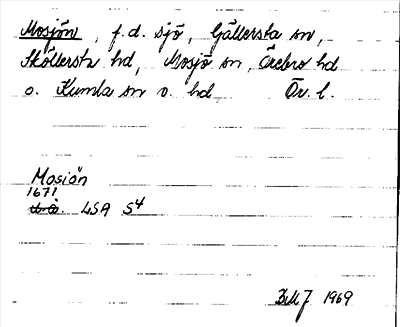 Mosjön, f.d. sjö, Gällersta sn,
Sköllersta hd, Mosjö sn, Örebro hd
o. Kumla sn o. hd Ör. l.
Mosiön
1671
u.å. LSA S4
1969